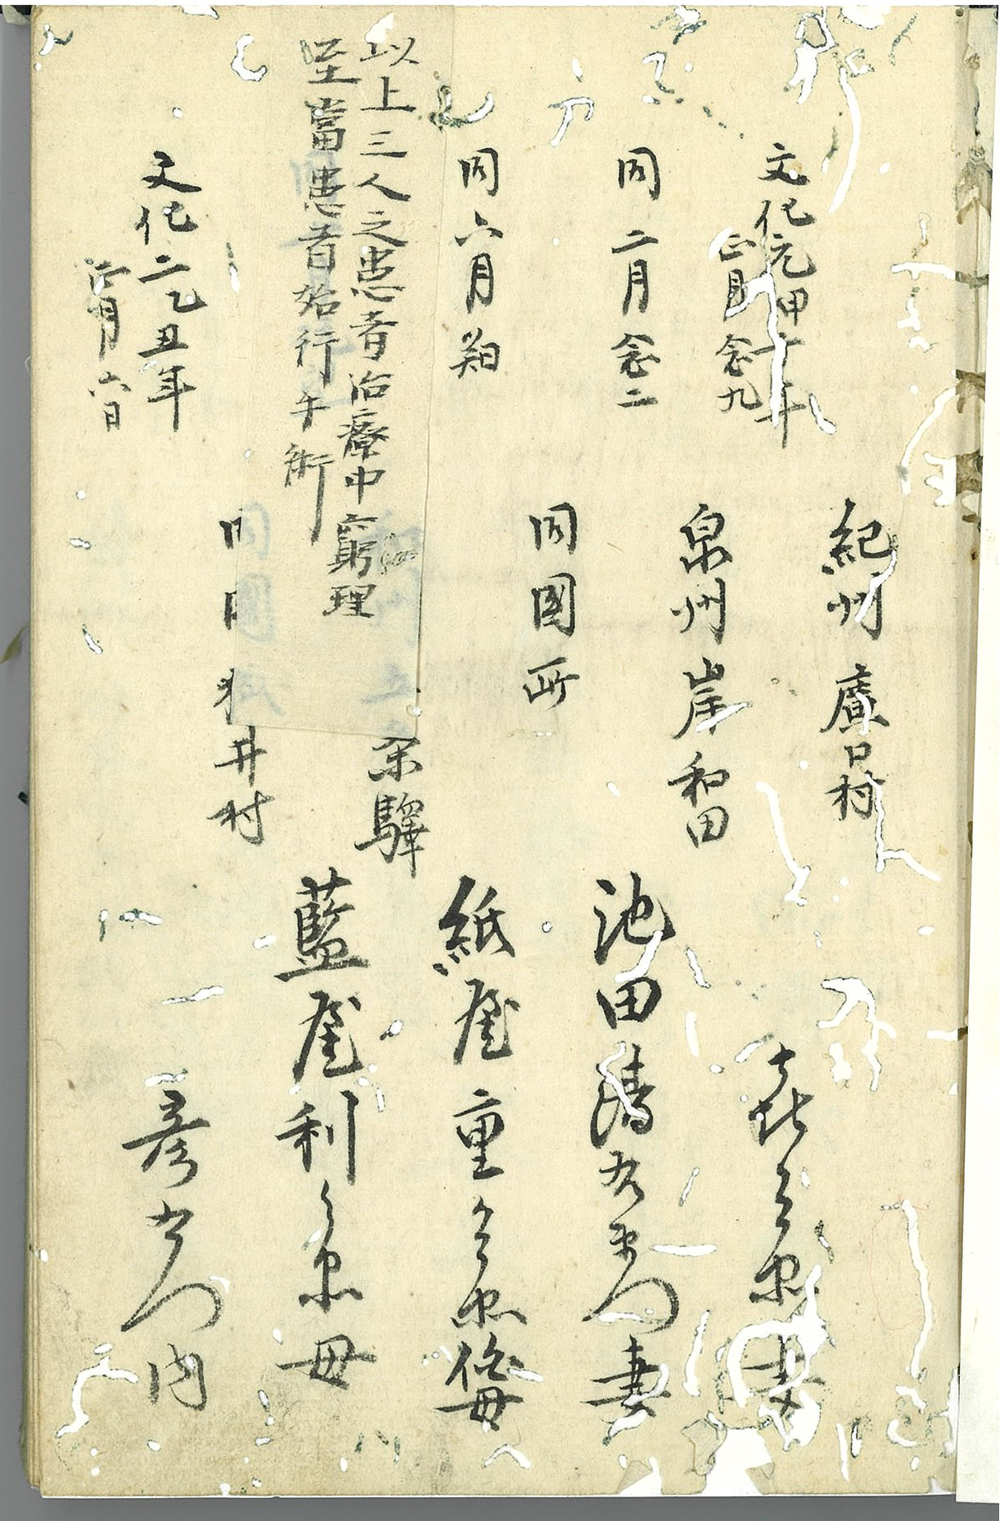 文化元甲子年
正月念九
紀州 村
兵衛妻
同 二月 念二
泉州岸和田
池田清右衛門妻
同六月朔
同國所
紙屋重兵衛
以上三人之患者治療中窮理
至當患者始行手術
五条驛
藍屋利兵衛母
文化二乙丑年
六日
井村
彦右衛門内